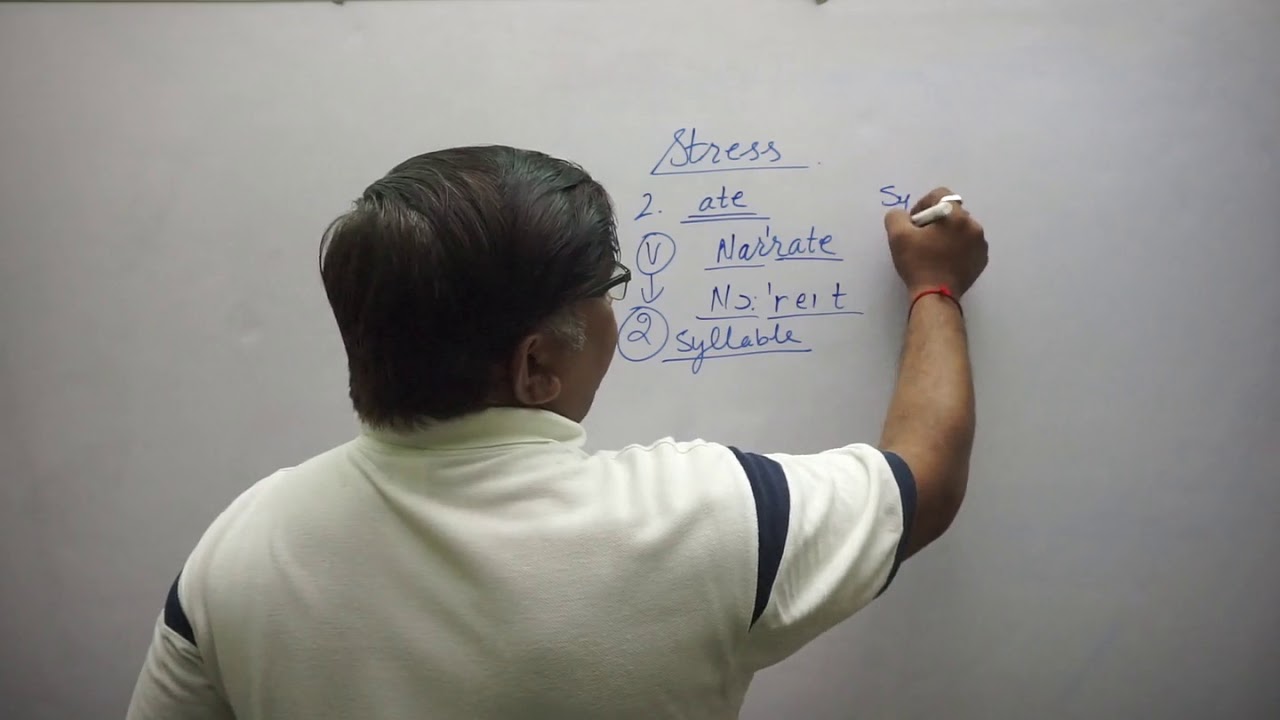 Stress
2. ate Sy
V Nar'rate
↓ Nɔ:'reɪt
2 syllable